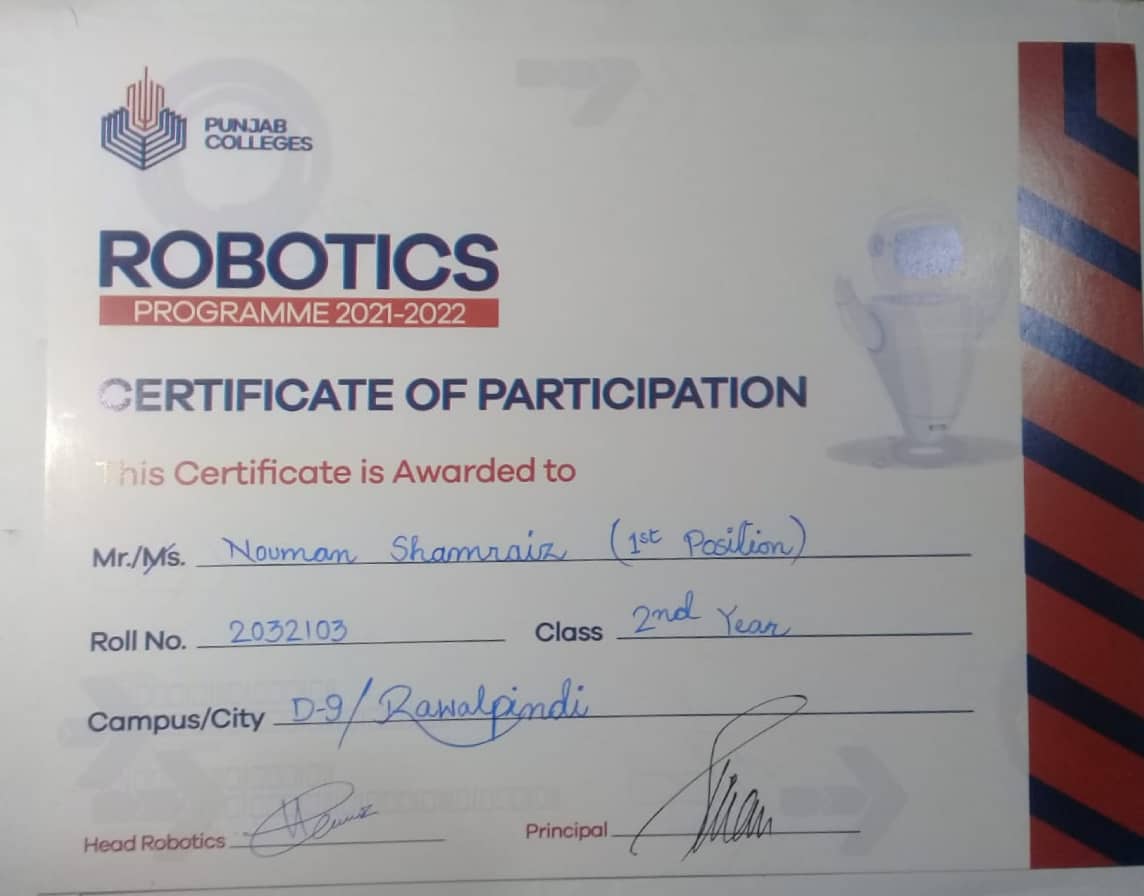 PUNJAB
COLLEGES
ROBOTICS
PROGRAMME 2021-2022
CERTIFICATE OF PARTICIPATION
This Certificate is Awarded to
Mr./Ms. Nouman Shamraiz (1st Position)
Roll No. 2032103 Class 2nd Year
Campus/City D-9/Rawalpindi
Head Robotics Principal